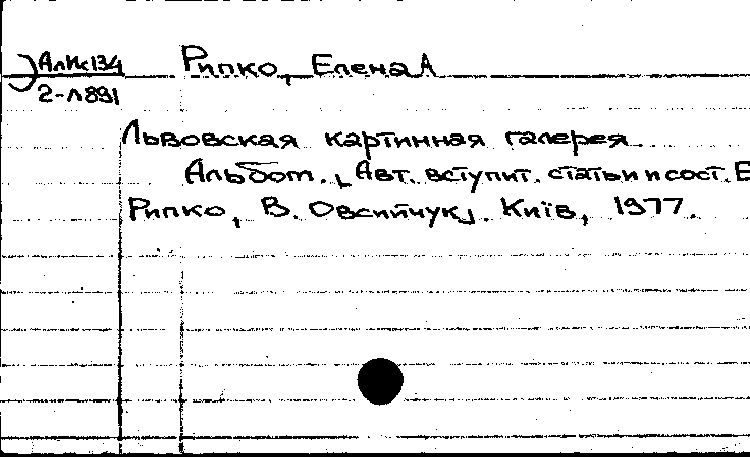 АлИс134 Рипко, Елена А
2-Л891
Львовская картинная галерея
Альбом. [Авт. вступит. статьи и сост. Е
Рипко, В. Овсийчук]. Київ, 1977.